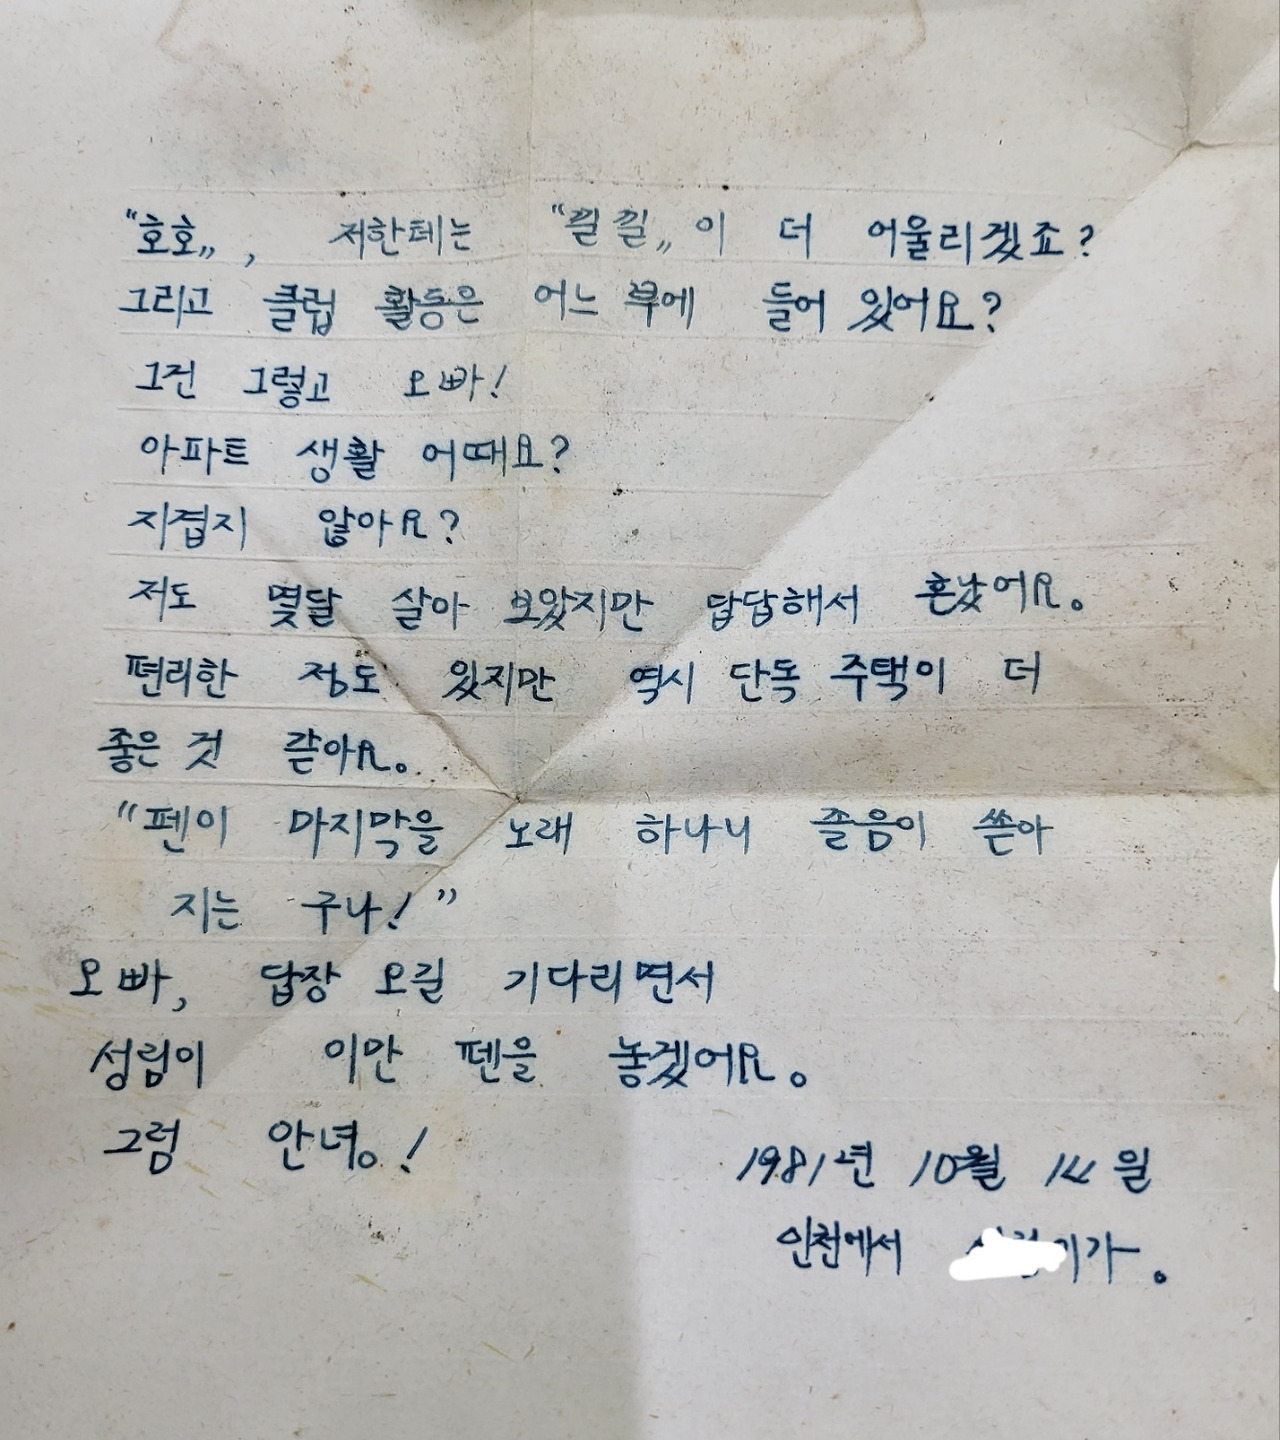 "호호", 저한테는 "낄낄"이 더 어울리겠죠?
그리고 클럽 활동은 어느 부에 들어 있어요?
그건 그렇고 오빠!
아파트 생활 어때요?
지겹지 않아요?
저도 몇달 살아 보았지만 답답해서 혼났어요.
편리한 점도 있지만 역시 단독 주택이 더
좋은 것 같아요.
"펜이 마지막을 노래 하나니 졸음이 쏟아
지는 구나!"
오빠, 답장 오길 기다리면서
성림이 이만 펜을 놓겠어요.
그럼 안녕!
1981년 10월 14일
인천에서 이가.